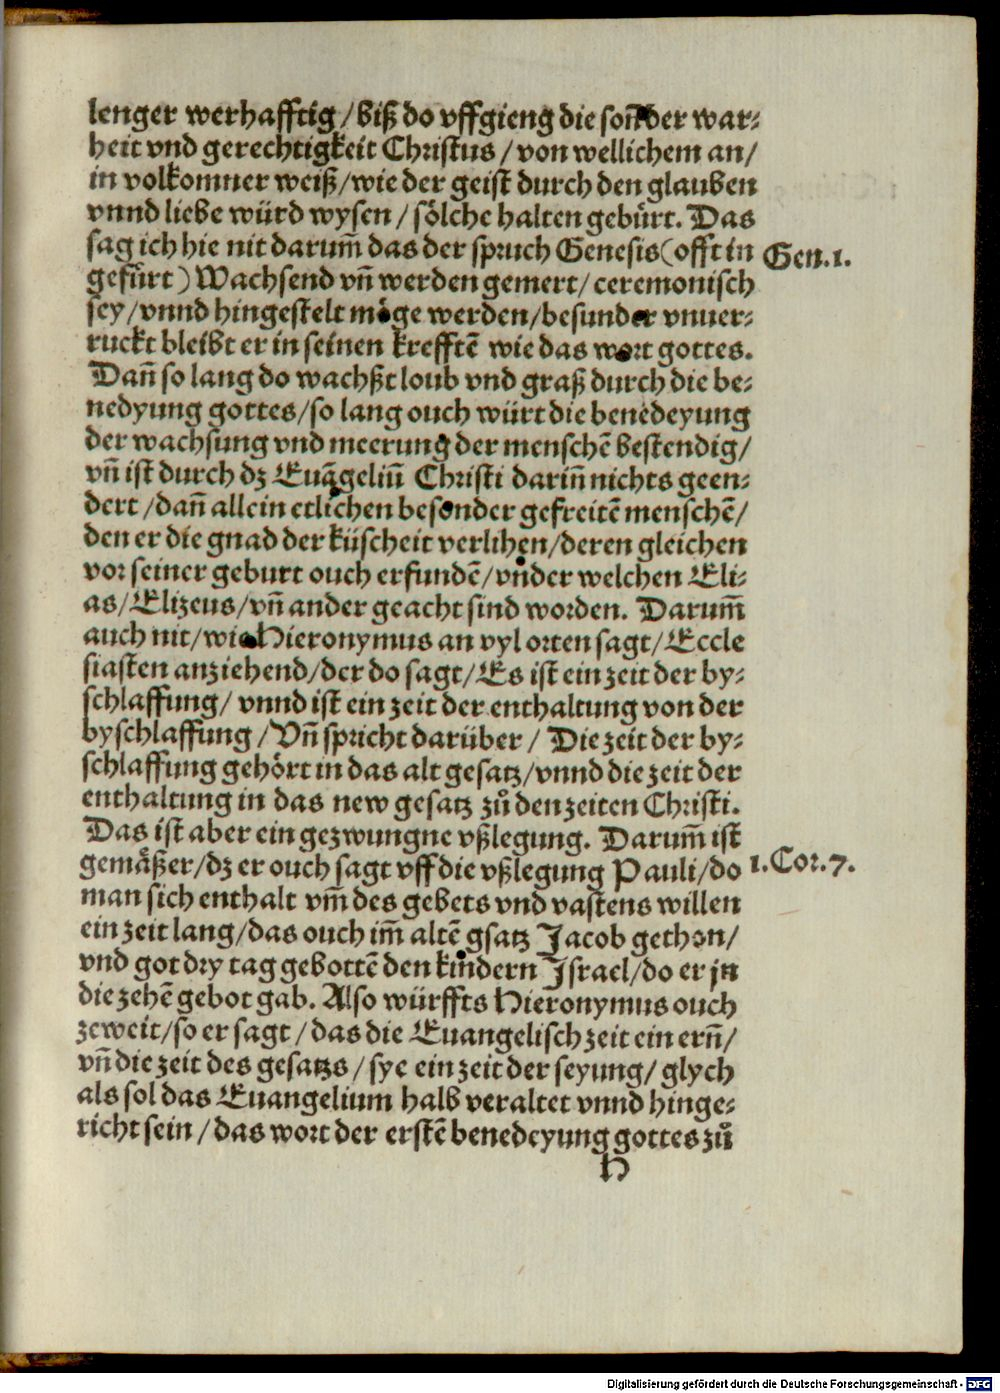 lenger werhafftig / biß do vffgieng die soñ der war⸗
heit vnd gerechtigkeit Christus / von wellichem an /
in volkomner weiß / wie der geist durch den glauben
vnnd liebe würd wysen / sölche halten gebürt. Das
sag ich hie nit darum̃ das der spruch Genesis (offt in
Gen. 1.
gefürt) Wachsend vñ werden gemert / ceremonisch
sey / vnnd hingestelt möge werden / besunder vnuer⸗
ruckt bleibt er in seinen krefftẽ wie das wort gottes.
Dañ so lang do wachßt loub vnd graß durch die be⸗
nedyung gottes / so lang ouch würt die benedeyung
der wachsung vnd meerung der menschẽ bestendig /
vñ ist durch dz Euãgeliũ Christi dariñ nichts geen⸗
dert / dañ allein etlichen besonder gefreitẽ menschẽ /
den er die gnad der küscheit verlihen / deren gleichen
vor seiner geburt ouch erfundẽ / vñder welchen Eli⸗
as / Elizeus / vñ ander geacht sind worden. Darum̃
auch nit / wie Hieronymus an vyl orten sagt / Eccle
siasten anziehend / der do sagt / Es ist ein zeit der by⸗
schlaffung / vnnd ist ein zeit der enthaltung von der
byschlaffung / Vñ spricht darüber / Die zeit der by⸗
schlaffung gehört in das alt gesatz / vnnd die zeit der
enthaltung in das new gesatz zů den zeiten Christi.
Das ist aber ein gezwungne vßlegung. Darum̃ ist
gemäßer / dz er ouch sagt vff die vßlegung Pauli / do
1. Cor. 7.
man sich enthalt vm̃ des gebets vnd vastens willen
ein zeit lang / das ouch im̃ altẽ gsatz Jacob gethon /
vnd got dry tag gebottẽ den kindern Israel / do er jn
die zehẽ gebot gab. Also würffts Hieronymus ouch
zeweit / so er sagt / das die Euangelisch zeit ein erñ /
vñ die zeit des gesatzs / sye ein zeit der seyung / glych
als sol das Euangelium halb veraltet vnnd hinge⸗
richt sein / das wort der erstẽ benedeyung gottes zů
H
Digitalisierung gefördert durch die Deutsche Forschungsgemeinschaft - DFG